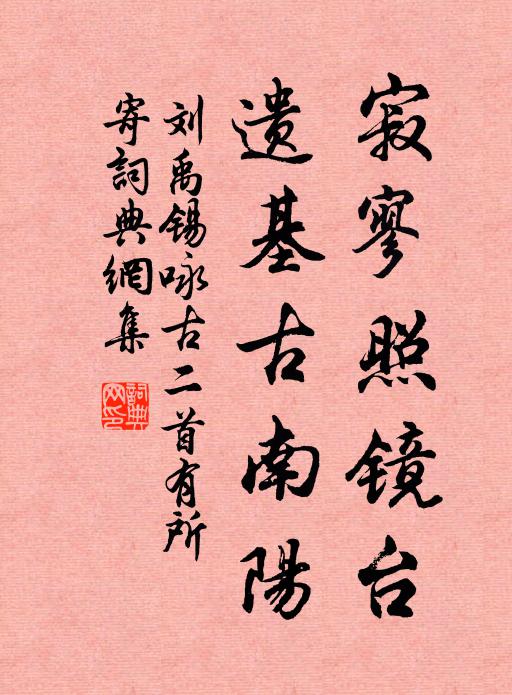 寂寥照镜台
遗基古南陽
刘禹锡咏古二首有所
寄詞典網集
詞典网印